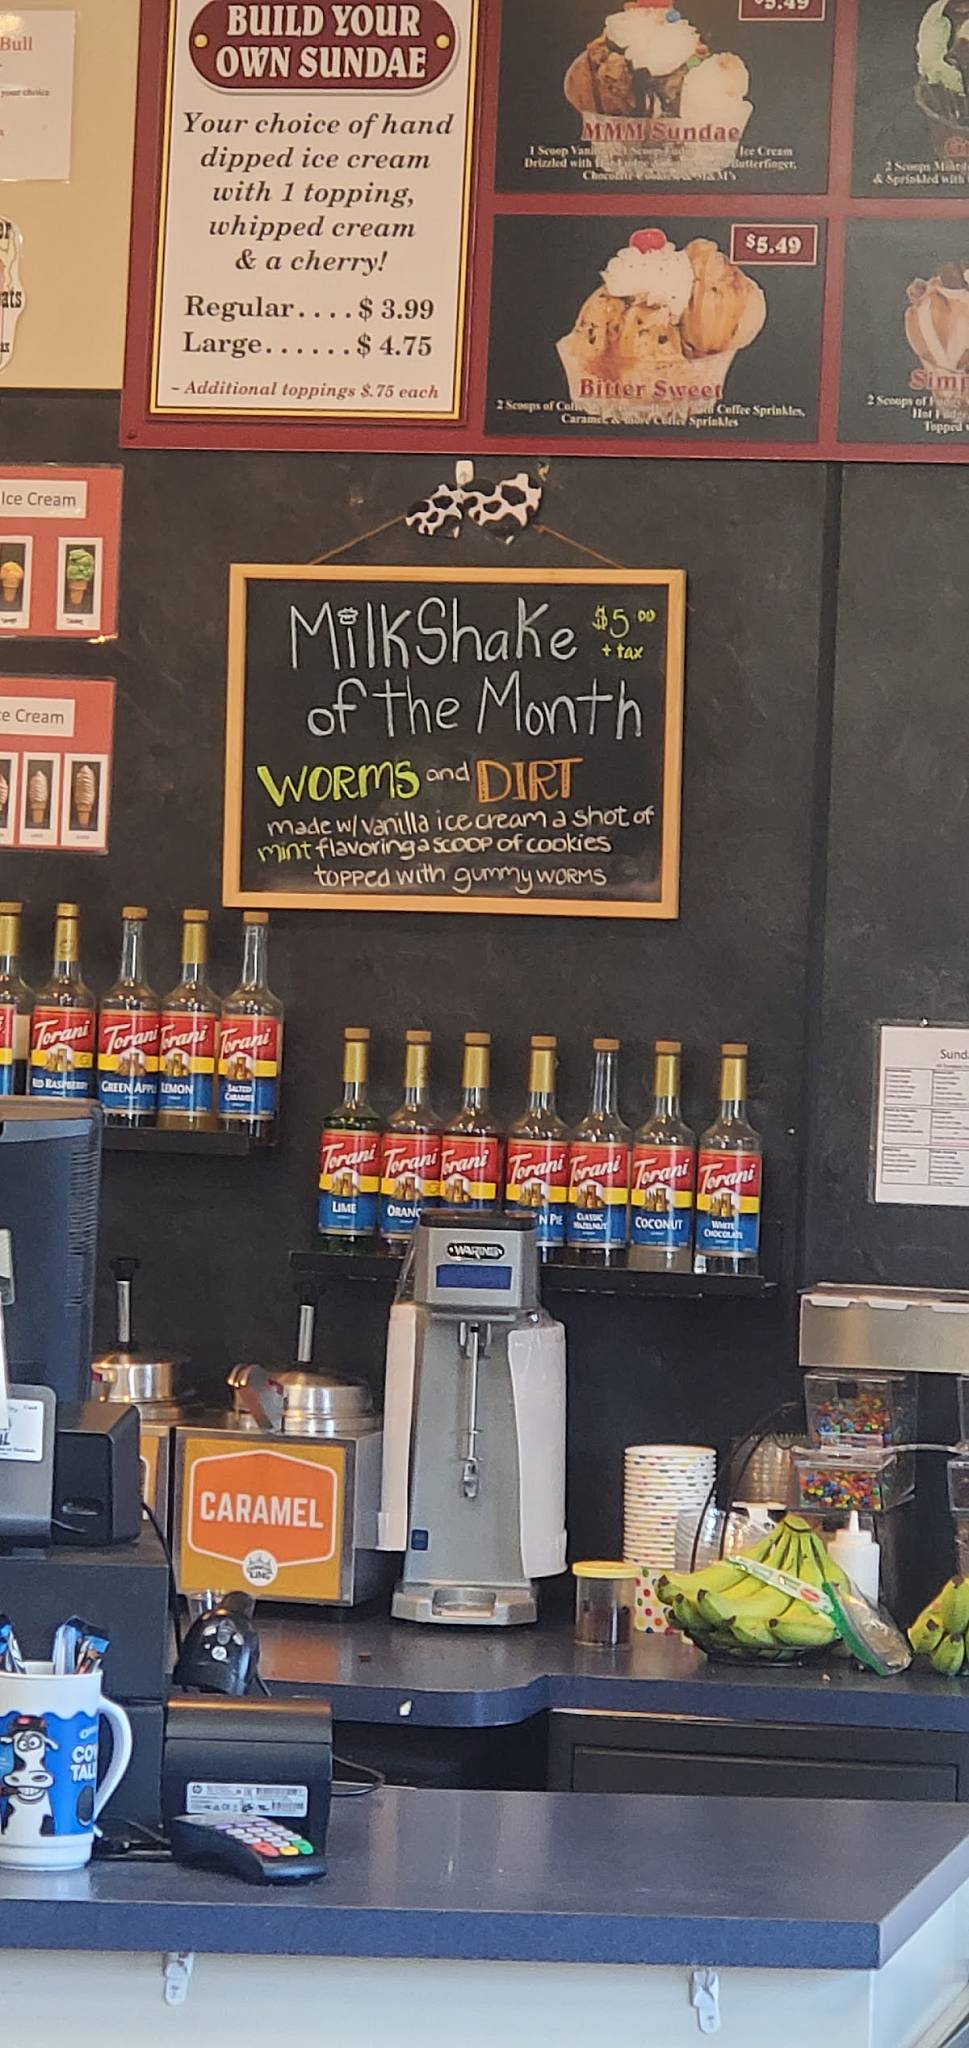 Bull
your choice
BUILD YOUR
OWN SUNDAE
Your choice of hand
dipped ice cream
with 1 topping,
whipped cream
& a cherry!
Regular.... $ 3.99
Large...... $ 4.75
~ Additional toppings $.75 each
$5.49
MMM Sundae
1 Scoop
Ice Cream
Drizzled with
Butterfinger,
$5.49
Bitter Sweet
2 Scoops of
Coffee Sprinkles,
Caramel, & more Coffee Sprinkles
2 Scoops Mint
& Sprinkled with
2 Scoops of
Hot Fudge
Topped
Ice Cream
Ice Cream
MilkShake $5.00
+ tax
of the Month
WORMS and DIRT
made w/ vanilla ice cream a shot of
mint flavoring a scoop of cookies
topped with gummy worms
Torani
RED RASPBERRY
Torani
GREEN APPLE
Torani
LEMON
Torani
SALTED
CARAMEL
Torani
LIME
Torani
ORANG
Torani
Torani
N PIE
Torani
CLASSIC
HAZELNUT
Torani
COCONUT
Torani
WHITE
CHOCOLATE
WARING
CARAMEL
COW
TAL
hp